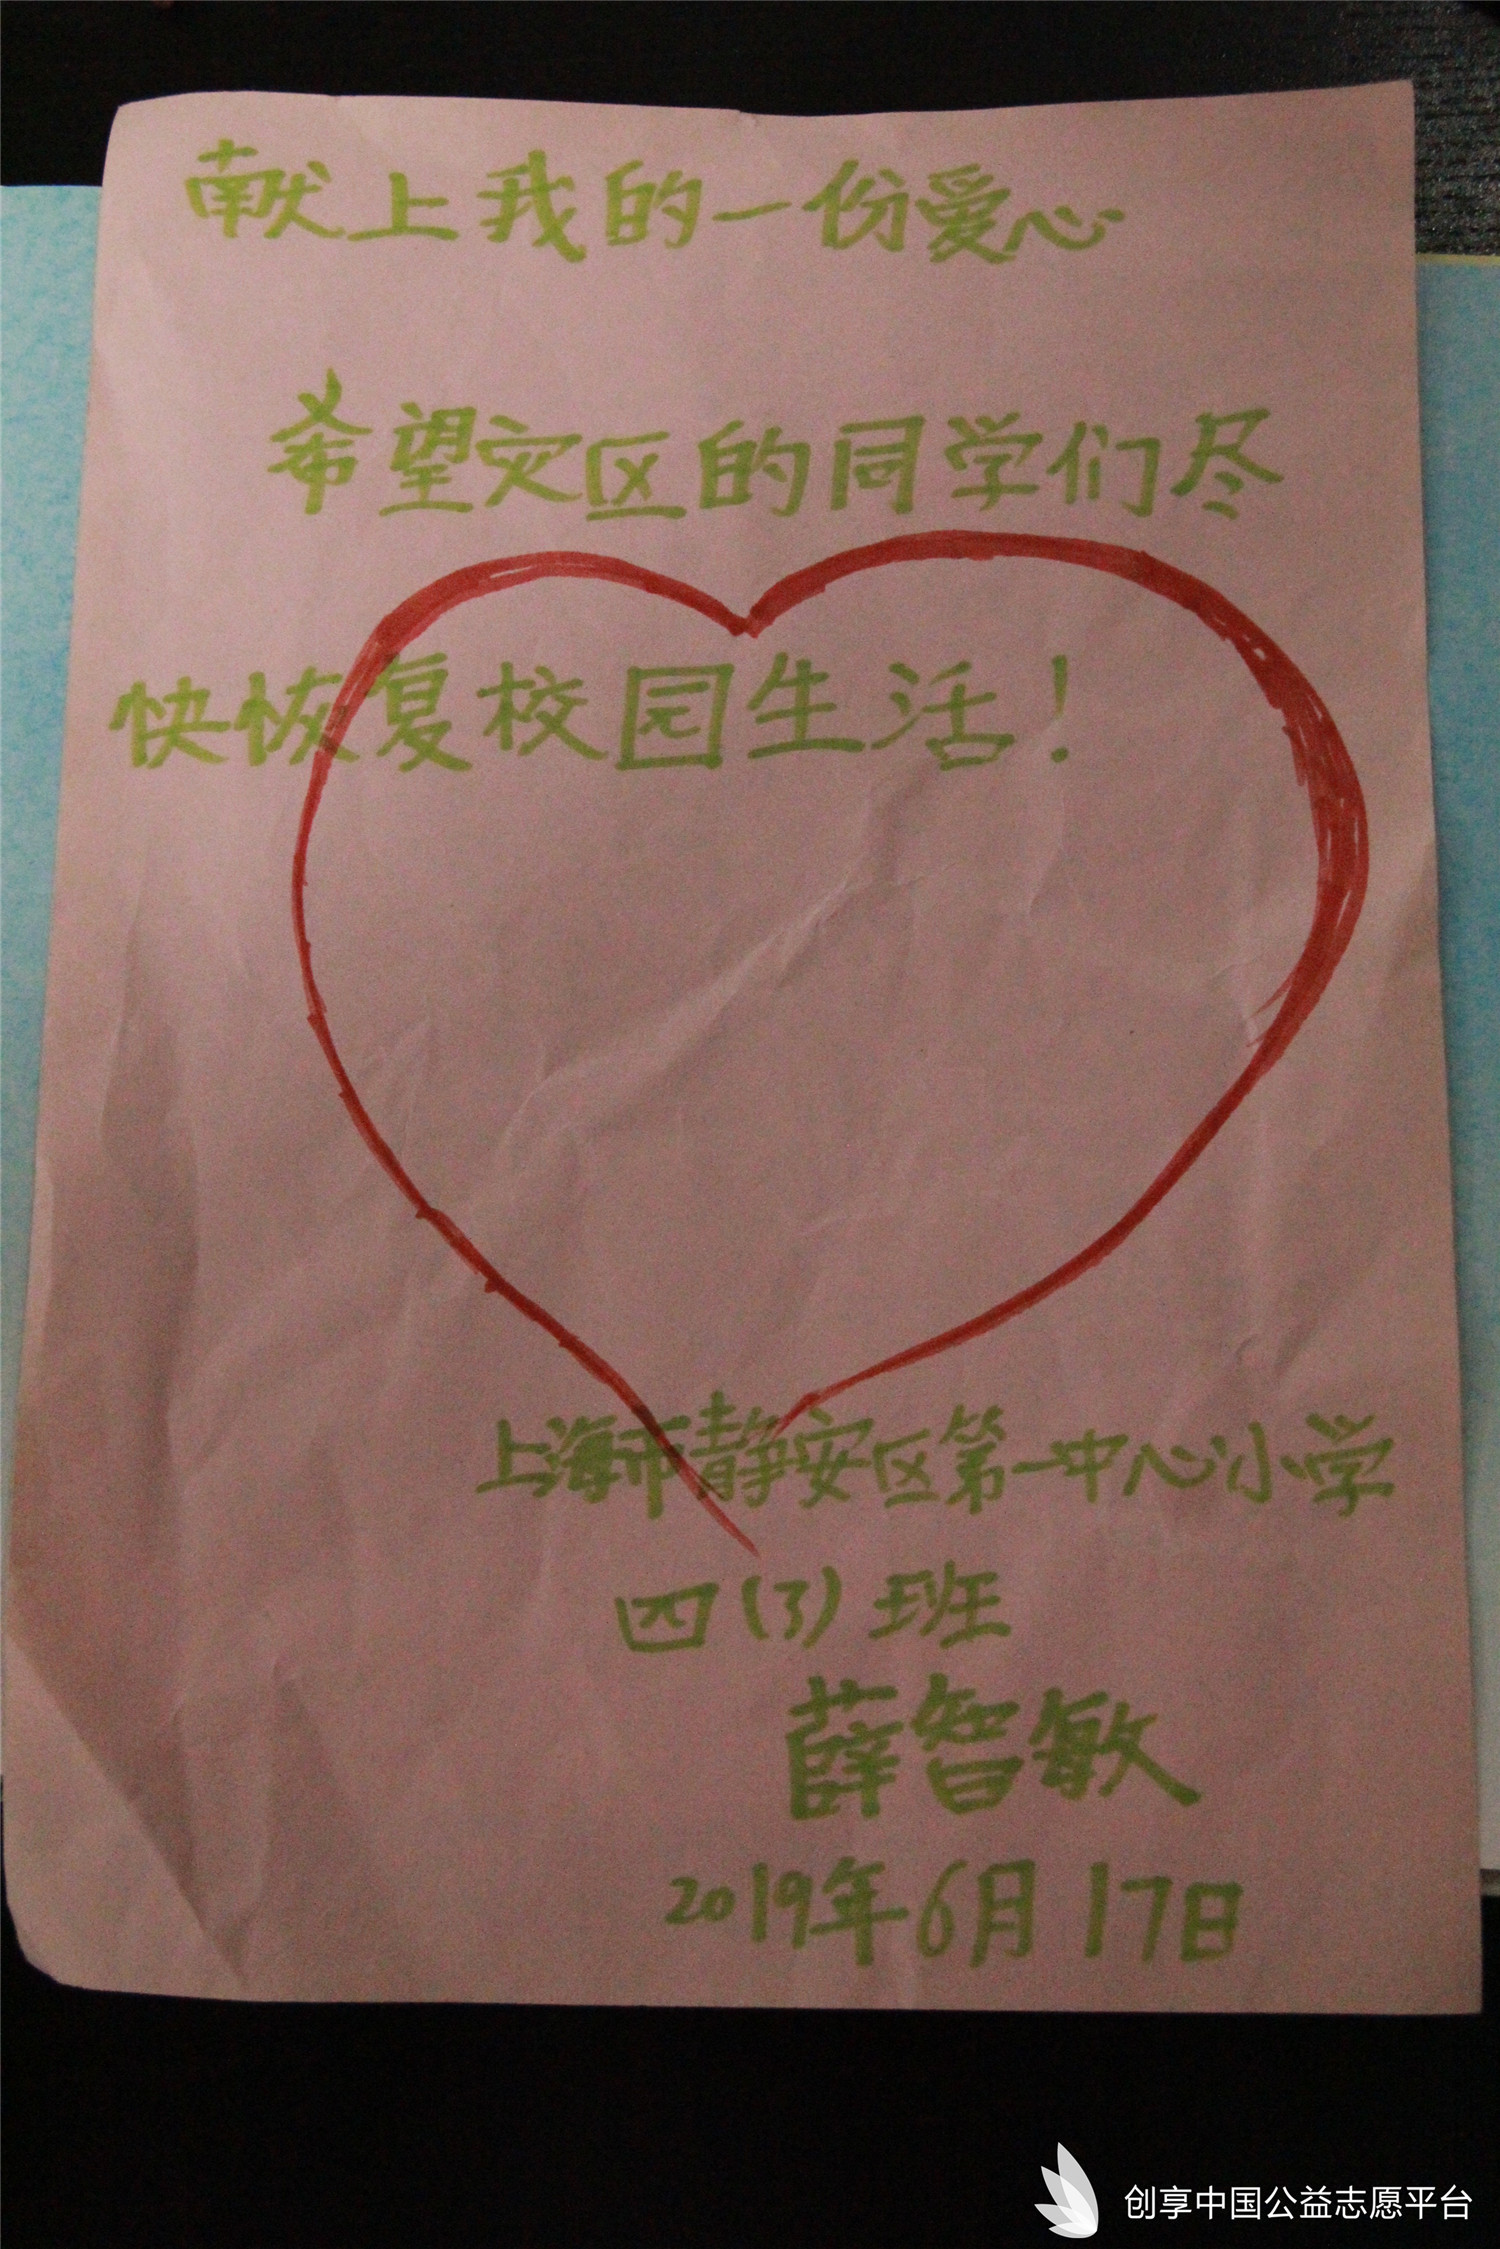 献上我的一份爱心
希望灾区的同学们尽
快恢复校园生活！
上海市静安区第一中心小学
四(3)班
薛智敏
2019年6月17日
创享中国公益志愿平台